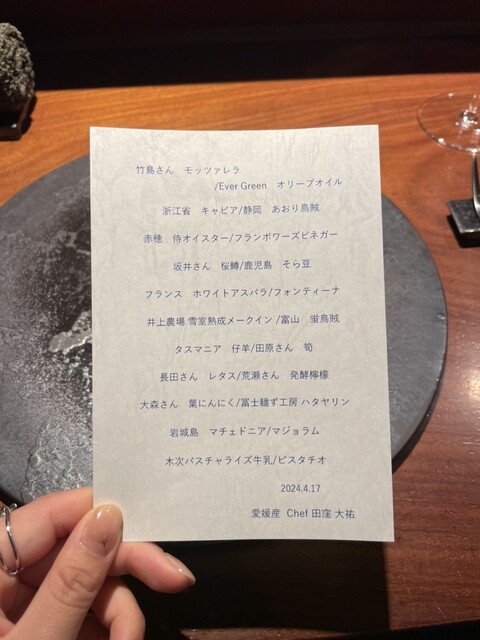 竹島さん　モッツァレラ
/Ever Green　オリーブオイル
浙江省　キャビア/静岡　あおり烏賊
赤穂　侍オイスター/フランボワーズビネガー
坂井さん　桜鱒/鹿児島　そら豆
フランス　ホワイトアスパラ/フォンティーナ
井上農場 雪室熟成メークイン /富山　蛍烏賊
タスマニア　仔羊/田原さん　筍
長田さん　レタス/荒瀬さん　発酵檸檬
大森さん　葉にんにく/冨士麺ず工房 ハタヤリン
岩城島　マチェドニア/マジョラム
木次パスチャライズ牛乳/ピスタチオ
2024,4.17
愛媛産 Chef 田窪 大祐